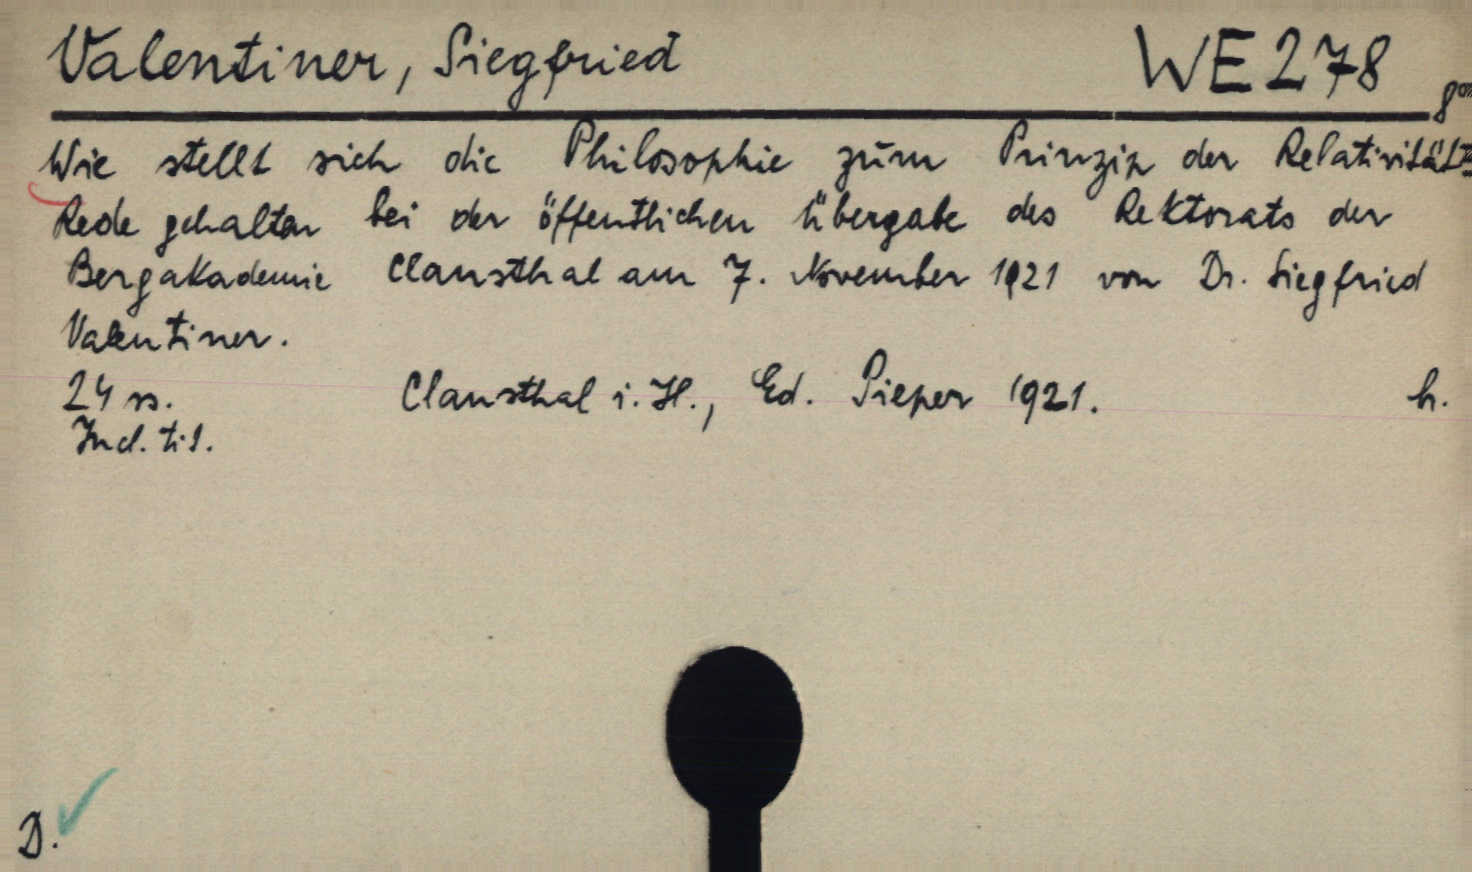 Valentiner, Siegfried WE 278 8°
Wie stellt sich die Philosophie zum Prinzip der Relativität?
Rede gehalten bei der öffentlichen Übergabe des Rektorats der
Bergakademie Clausthal am 7. November 1921 von Dr. Siegfried
Valentiner.
24 ss. Clausthal i. H., Ed. Pieper 1921. h.
Incl. tit.
D.